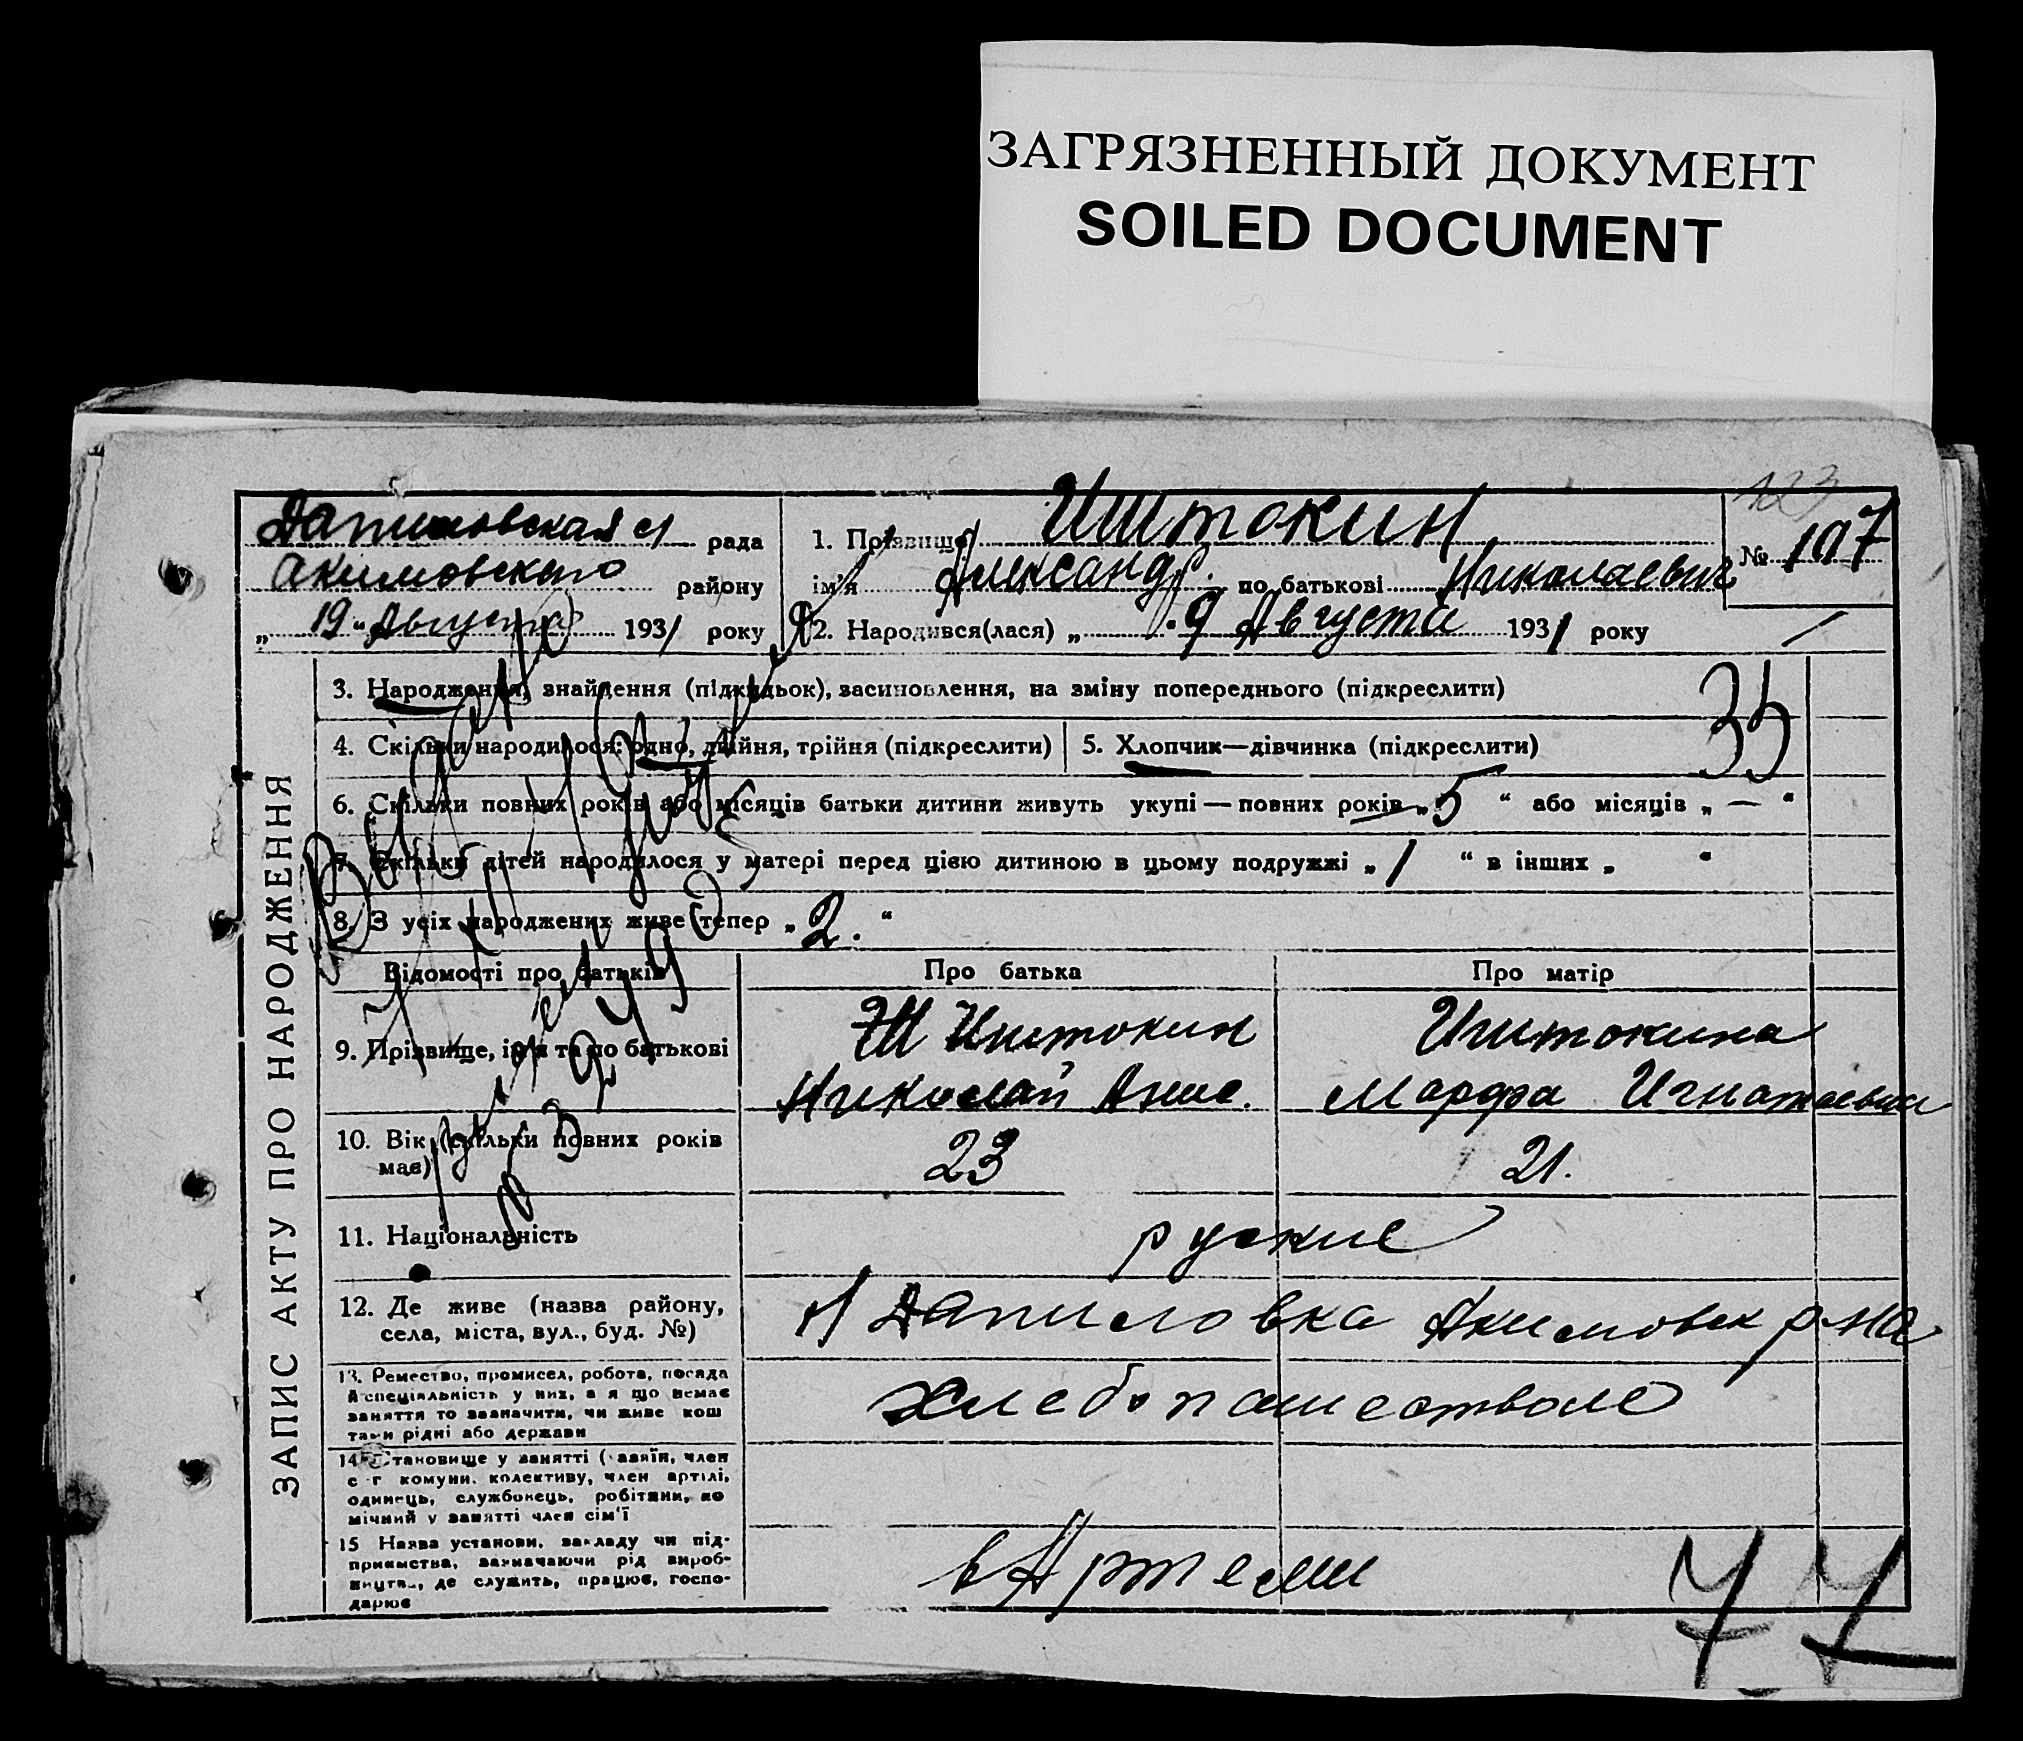 ЗАГРЯЗНЕННЫЙ ДОКУМЕНТ
SOILED DOCUMENT
123
рада
Акимовского району
„ 19 " Августа 1931 року
1. Прізвище Иштокин
ім'я Александр по батькові Николаевич
№ 107
2. Народився(лася) „ 9 Августа 1931 року
3. Народження, знайдення (підкидьок), засиновлення, на зміну попереднього (підкреслити)
33
4. Скільки народилося: одно, двійня, трійня (підкреслити)
5. Хлопчик—дівчинка (підкреслити)
6. Скільки повних років або місяців батьки дитини живуть укупі — повних років „ 5 “ або місяців „ — “
7. Скільки дітей народилося у матері перед цією дитиною в цьому подружжі „ 1 “ в інших „ “
8. З усіх народжених живе тепер „ 2. “
ЗАПИС АКТУ ПРО НАРОДЖЕННЯ
Відомості про батьків
Про батька
Про матір
9. Прізвище, ім'я та по батькові
Иштокин
Николай
Иштокина
Марфа Игнатьевна
10. Вік (скільки повних років має)
23
21.
11. Національність
руские
12. Де живе (назва району,
села, міста, вул., буд. №)
Акимовск р-на
13. Ремество, промисел, робота, посада
й спеціяльність у них, а я що немає
заняття то зазначити, чи живе кош
тами рідні або держави
14. Становище у занятті (хазяїн, член
с-г комуни, колективу, член артілі,
одинець, службовець, робітник, по
мічний у занятті член сім'ї
15 Назва установи, закладу чи під-
приємства, зазначаючи рід вироб-
ництва, де служить, працює, госпо-
дарює
в Артели